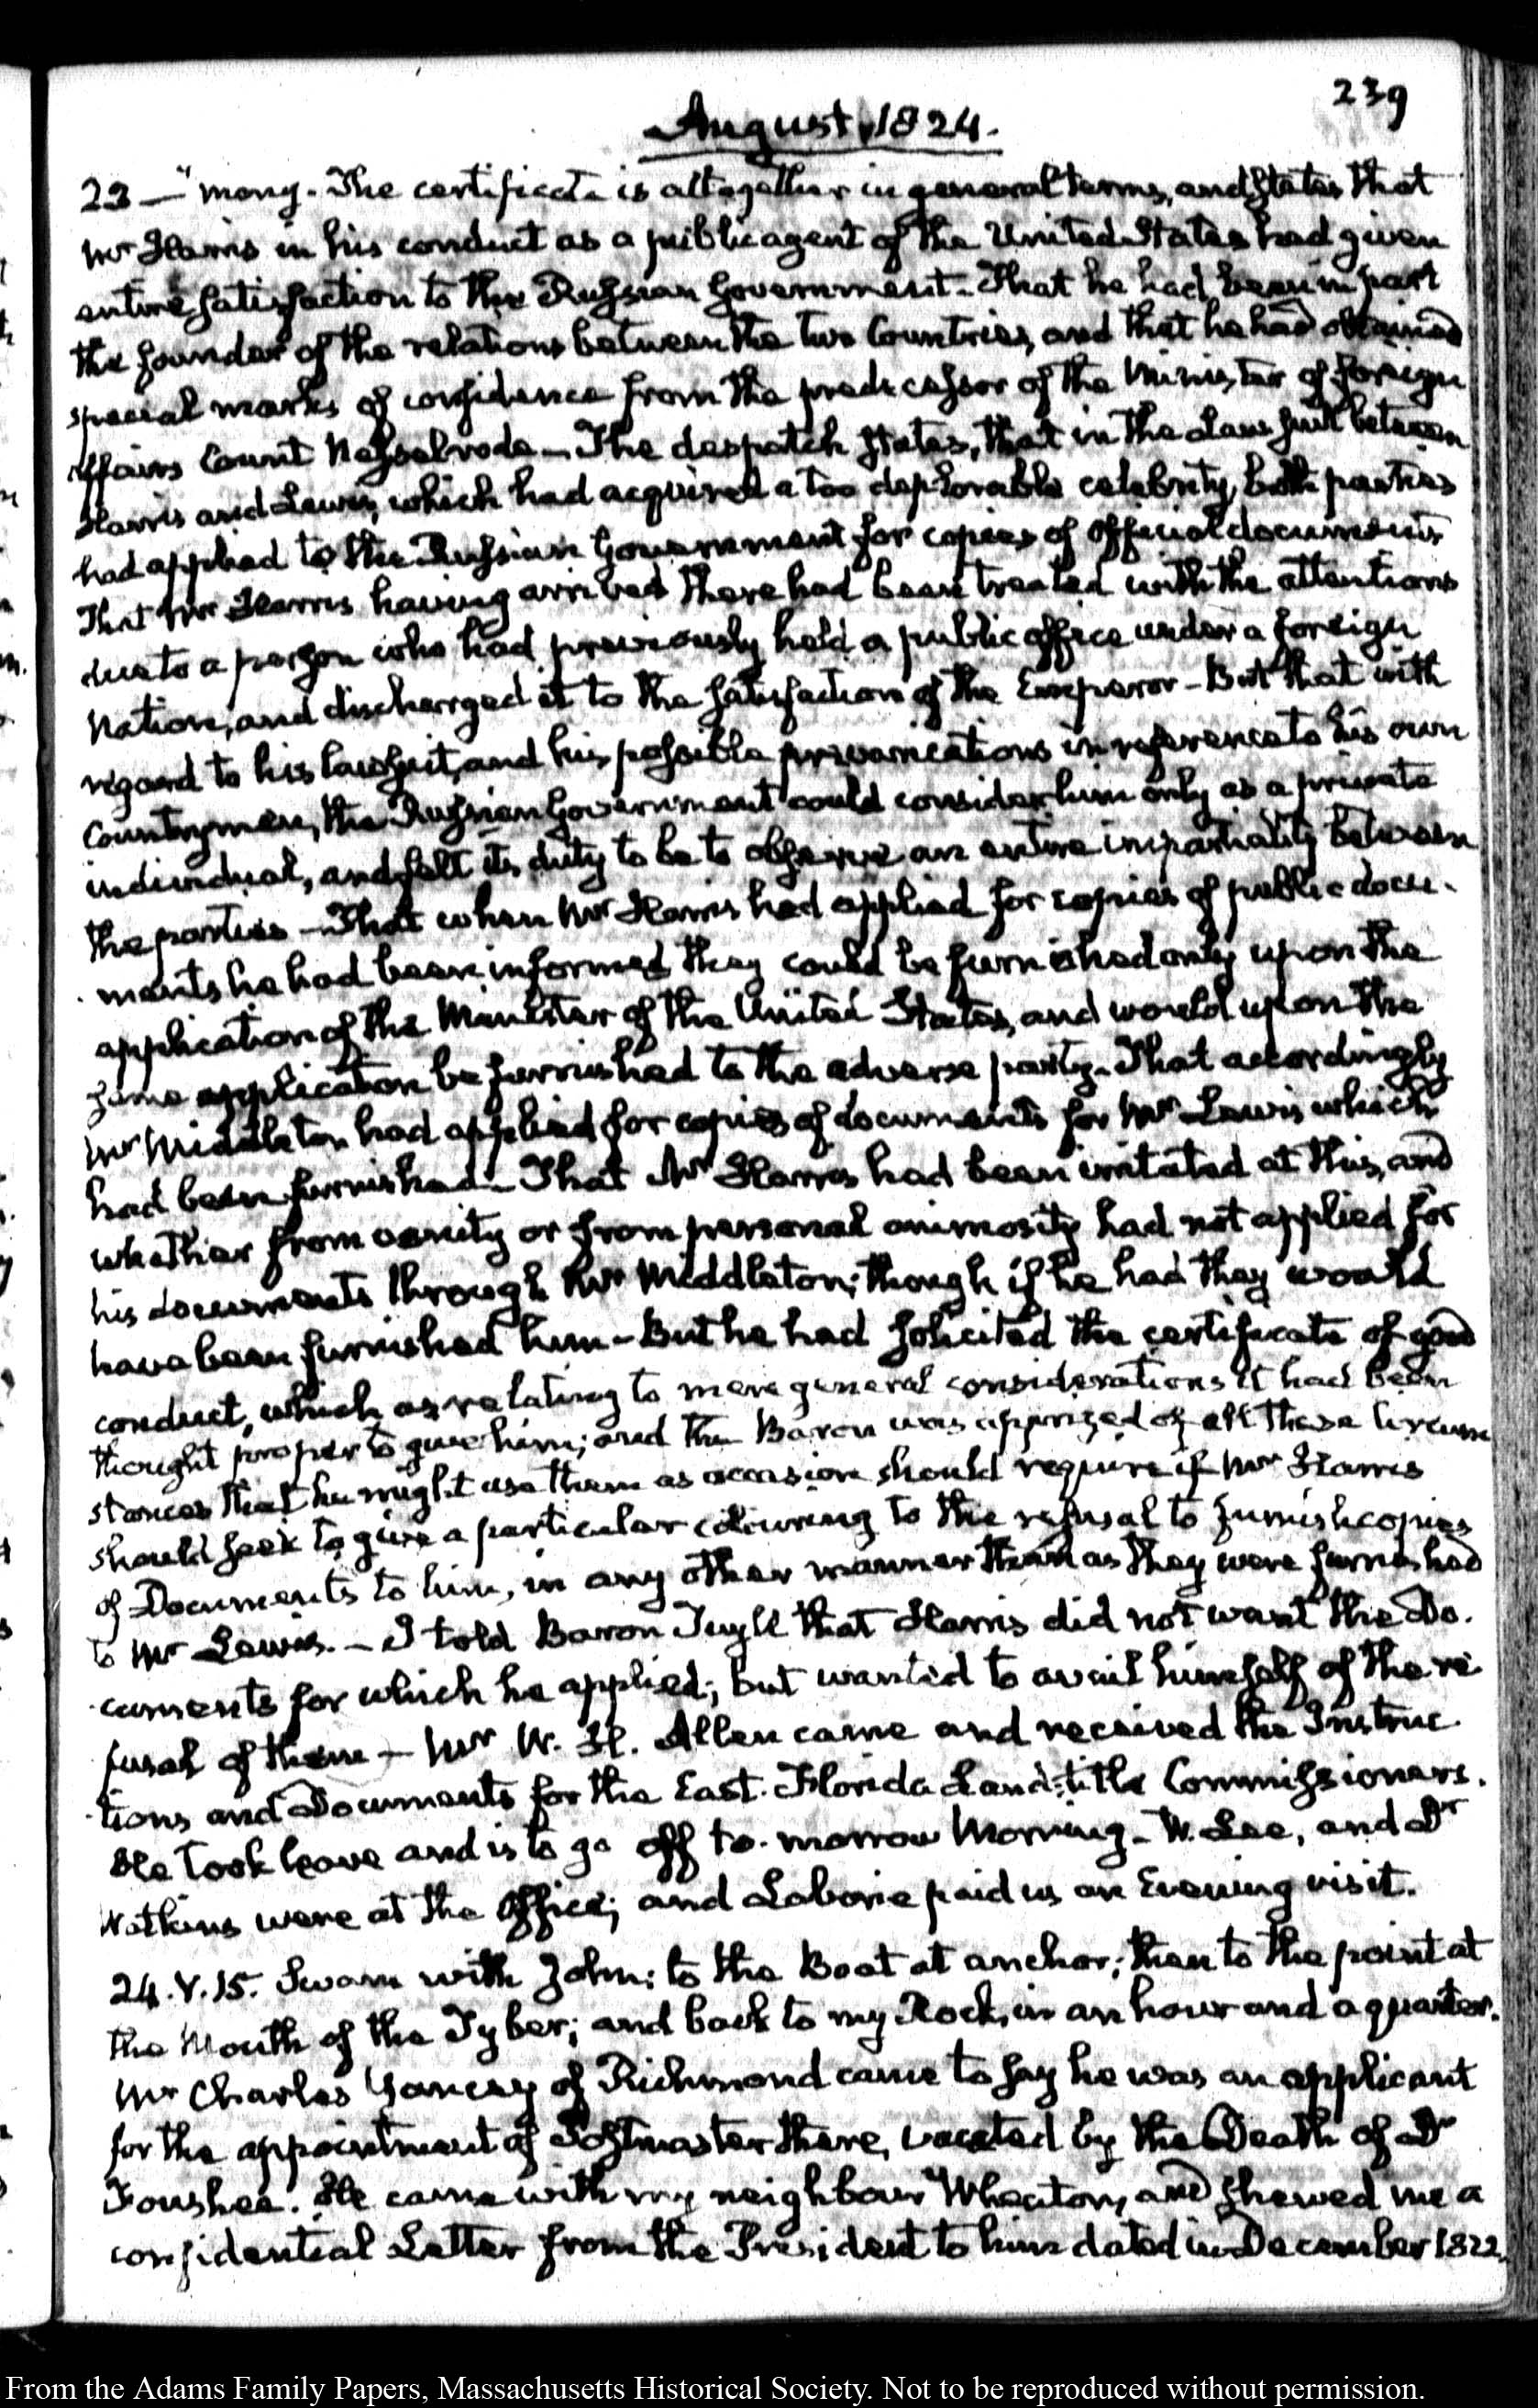 239
August 1824.
23 — "mony. The certificate is altogether in general terms, and states that
Mr Harris in his conduct as a public agent of the United States had given
entire satisfaction to the Russian Government. That he had been in part
the founder of the relations between the two Countries, and that he had obtained
special marks of confidence from the predecessor of the Minister of foreign
affairs Count Nesselrode — The despatch states, that in the Law suit between
Harris and Lewis, which had acquired a too deplorable celebrity, both parties
had applied to the Russian Government for copies of official documents
That Mr Harris having arrived there had been treated with the attentions
due to a person who had previously held a public office under a foreign
Nation, and discharged it to the satisfaction of the Emperor — But that with
regard to his lawsuit, and his possible prevarications in reference to his own
Countrymen, the Russian Government could consider him only as a private
individual, and felt its duty to be to observe an entire impartiality between
the parties — That when Mr Harris had applied for copies of public docu-
ments he had been informed they could be furnished only upon the
application of the Minister of the United States, and would upon the
same application be furnished to the adverse party. That accordingly
Mr Middleton had applied for copies of documents for Mr Lewis which
had been furnished — That Mr Harris had been irritated at this, and
whether from vanity or from personal animosity had not applied for
his documents through Mr Middleton; though if he had they would
have been furnished him — But he had solicited the certificate of good
conduct, which as relating to mere general considerations it had been
thought proper to give him; and the Baron was apprized of all these circum
stances that he might use them as occasion should require if Mr Harris
should seek to give a particular colouring to the refusal to furnish copies
of Documents to him, in any other manner than as they were furnished
to Mr Lewis. — I told Baron Tuyll that Harris did not want the Do-
cuments for which he applied; but wanted to avail himself of the re
fusal of them — Mr W. H. Allen came and received the Instruc
tions and Documents for the East Florida Land title Commissioners.
He took leave and is to go off to-morrow Morning — W. Lee, and Dr
Watkins were at the Office; and Laborie paid us an Evening visit.
24. V.15. Swam with John; to the Boat at anchor; then to the point at
the Mouth of the Tyber; and back to my Rock, in an hour and a quarter.
Mr Charles Yancey of Richmond came to say he was an applicant
for the appointment of Postmaster there, vacated by the Death of Dr
Foushee. He came with my neighbour Wheaton, and shewed me a
confidential Letter from the President to him dated in December 1822.
From the Adams Family Papers, Massachusetts Historical Society. Not to be reproduced without permission.